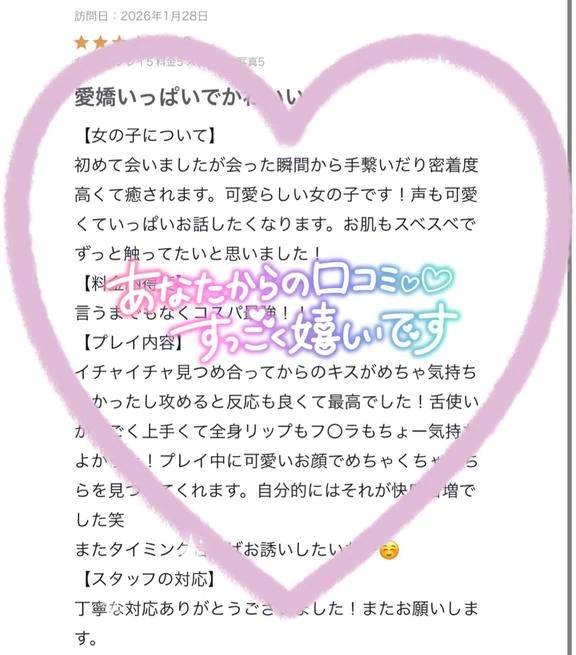 訪問日：2026年1月28日
プレイ5 料金5 写真5
愛嬌いっぱいでかわいい
【女の子について】
初めて会いましたが会った瞬間から手繋いだり密着度
高くて癒されます。可愛らしい女の子です！声も可愛
くていっぱいお話したくなります。お肌もスベスベで
ずっと触ってたいと思いました！
あなたからの口コミ♡♡
【料金
言うまでもなくコスパ最強！！
すっごく嬉しいです
【プレイ内容】
イチャイチャ見つめ合ってからのキスがめちゃ気持ち
かったし攻めると反応も良くて最高でした！舌使い
ごく上手くて全身リップもフ〇ラもちょー気持
よか！プレイ中に可愛いお顔でめちゃくち
らを見つ てくれます。自分的にはそれが快 増で
した笑
またタイミング ばお誘いしたい ☺️
【スタッフの対応】
丁寧な対応ありがとうございました！またお願いしま
す。